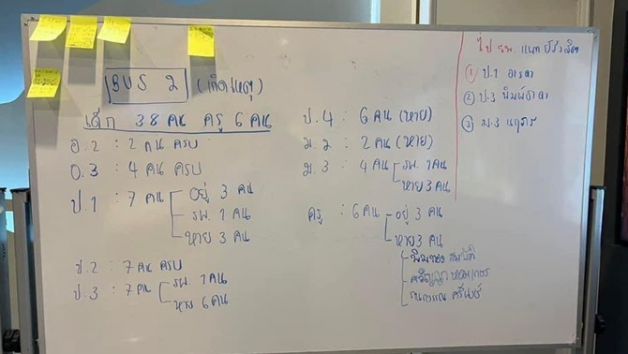 BUS 2 (เกิดเหตุ)
เด็ก 38 คน ครู 6 คน
อ.2 : 2 คน ครบ
อ.3 : 4 คน ครบ
ป.1 : 7 คน อยู่ 3 คน
รพ. 1 คน
หาย 3 คน
ป.2 : 7 คน ครบ
ป.3 : 7 คน รพ 1 คน
หาย 6 คน
ป.4 : 6 คน (หาย)
ม.2 : 2 คน (หาย)
ม.3 : 4 คน รพ. 1 คน
หาย 3 คน
ครู : 6 คน อยู่ 3 คน
หาย 3 คน
ไป รพ.
① ป.1
② ป.3
③ ม.3